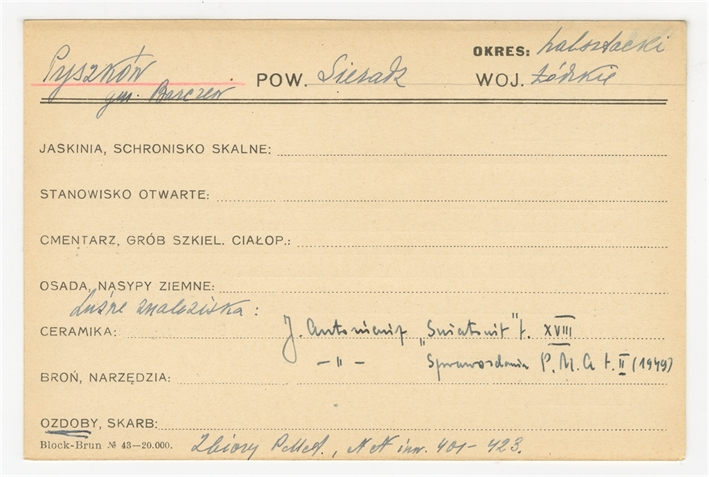 OKRES: halsztacki
Pyszków POW. Sieradz WOJ. Łódzkie
gm. Barczew
JASKINIA, SCHRONISKO SKALNE:
STANOWISKO OTWARTE:
CMENTARZ, GRÓB SZKIEL. CIAŁOP.:
OSADA, NASYPY ZIEMNE:
Luźne znaleziska:
CERAMIKA: J. Antoniewicz "Światowit" t. XVIII
— " — Sprawozdania P. M. A t. II (1949)
BROŃ, NARZĘDZIA:
OZDOBY, SKARB:
Block-Brun № 43—20.000. Zbiory PMA., NN inw. 401-423.